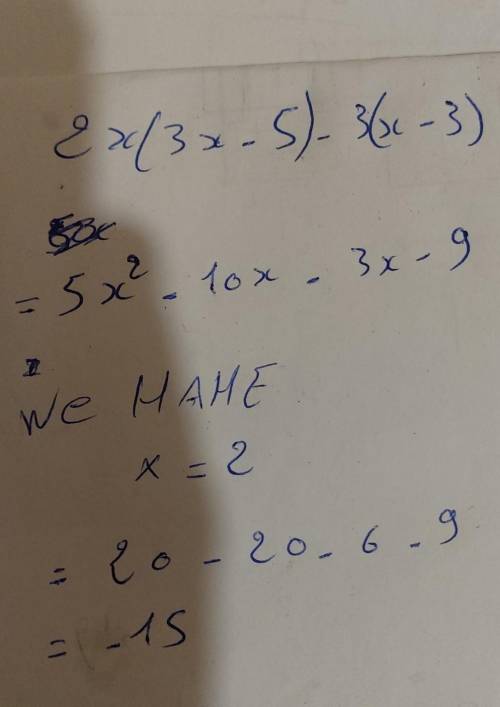 2x(3x - 5) - 3(x - 3)
= 5x² - 10x - 3x - 9
We HAHE
x = 2
= 20 - 20 - 6 - 9
= -15